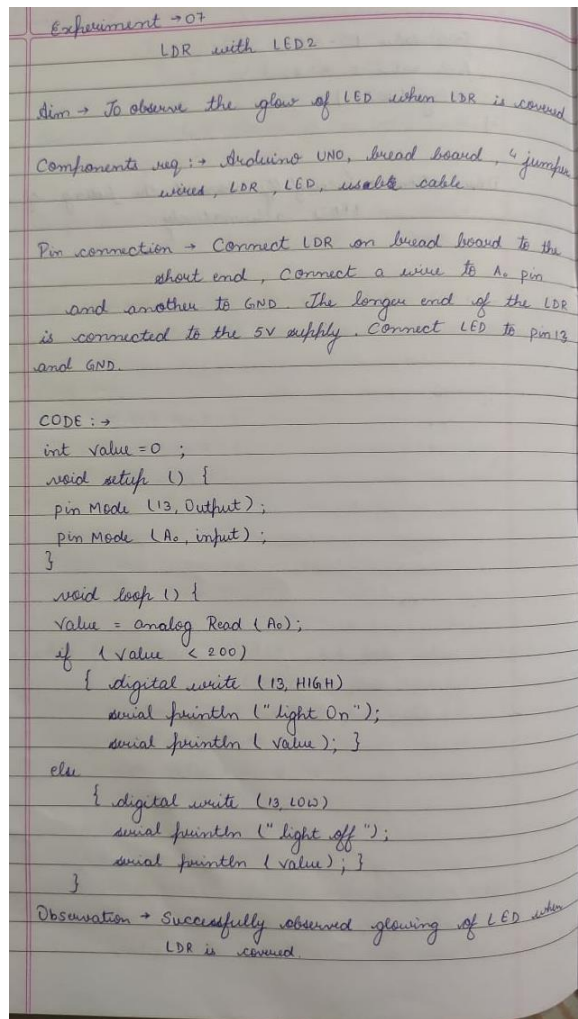 Experiment → 07
LDR with LED2
Aim → To observe the glow of LED when LDR is covered
Components req :→ Arduino UNO, bread board, 4 jumper
wires, LDR, LED, cable.
Pin connection → Connect LDR on bread board to the
short end, Connect a wire to A0 pin
and another to GND. The longer end of the LDR
is connected to the 5V supply. Connect LED to pin 13
and GND.
CODE :→
int value = 0 ;
void setup () {
pin Mode (13, Output);
pin Mode (A0, input);
}
void loop () {
Value = analog Read (A0);
if (value < 200)
{ digital write (13, HIGH)
serial println ("light On");
serial println (value); }
else
{ digital write (13, LOW)
serial println ("light off");
serial println (value); }
}
Observation → Successfully observed glowing of LED when
LDR is covered.